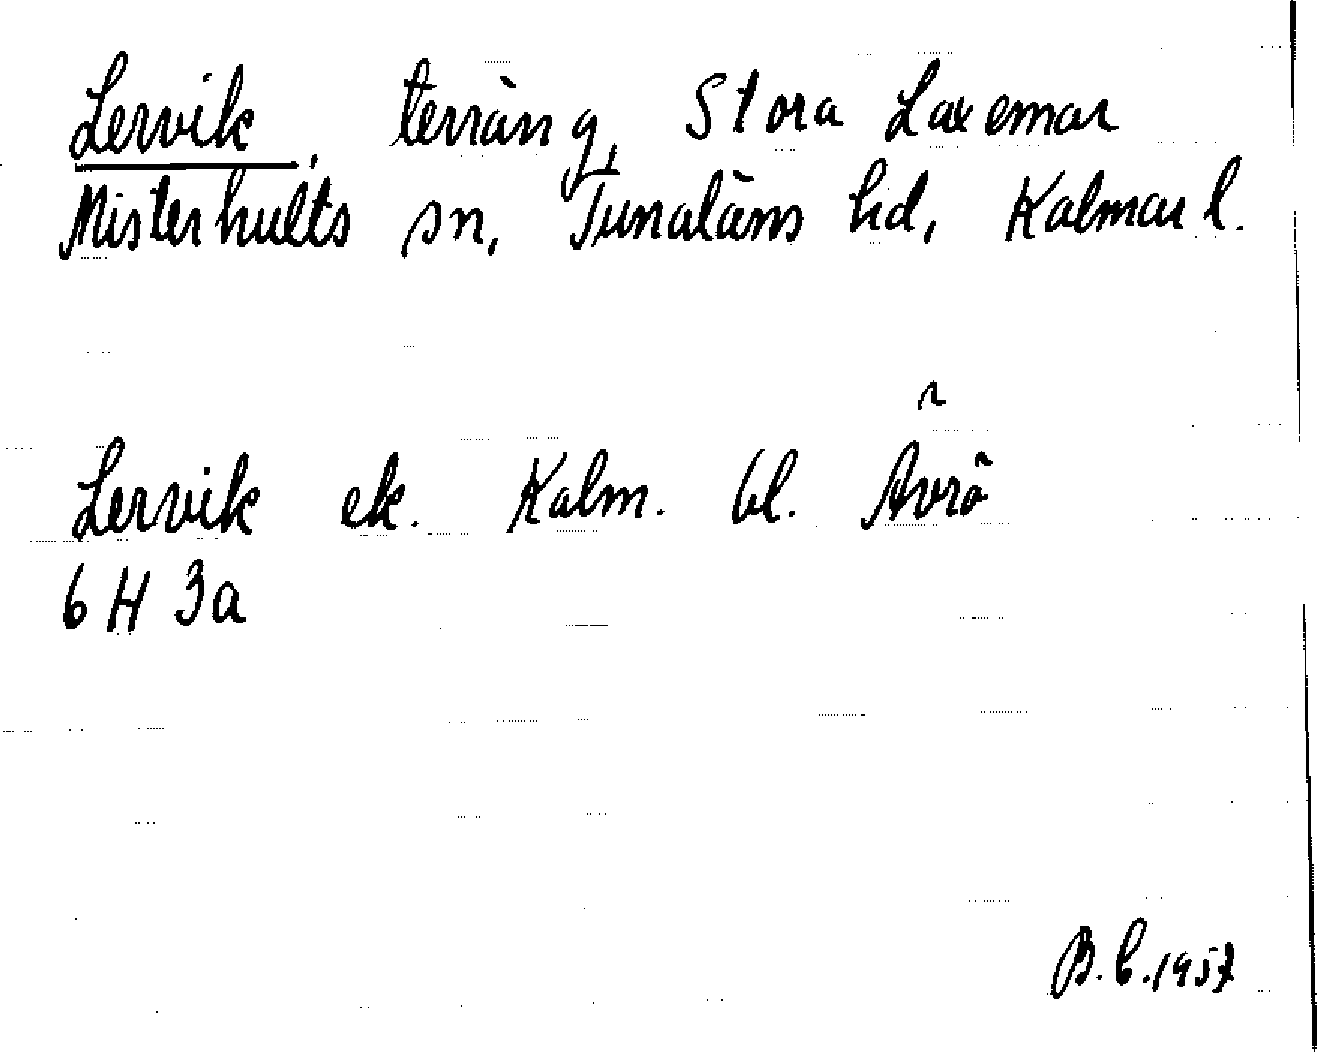 Lervik, terräng, Stora Laxemar
Misterhults sn, Tunaläns hd, Kalmar l.
Lervik ek. Kalm. bl. Ävrö
6 H 3a
B.C. 1957